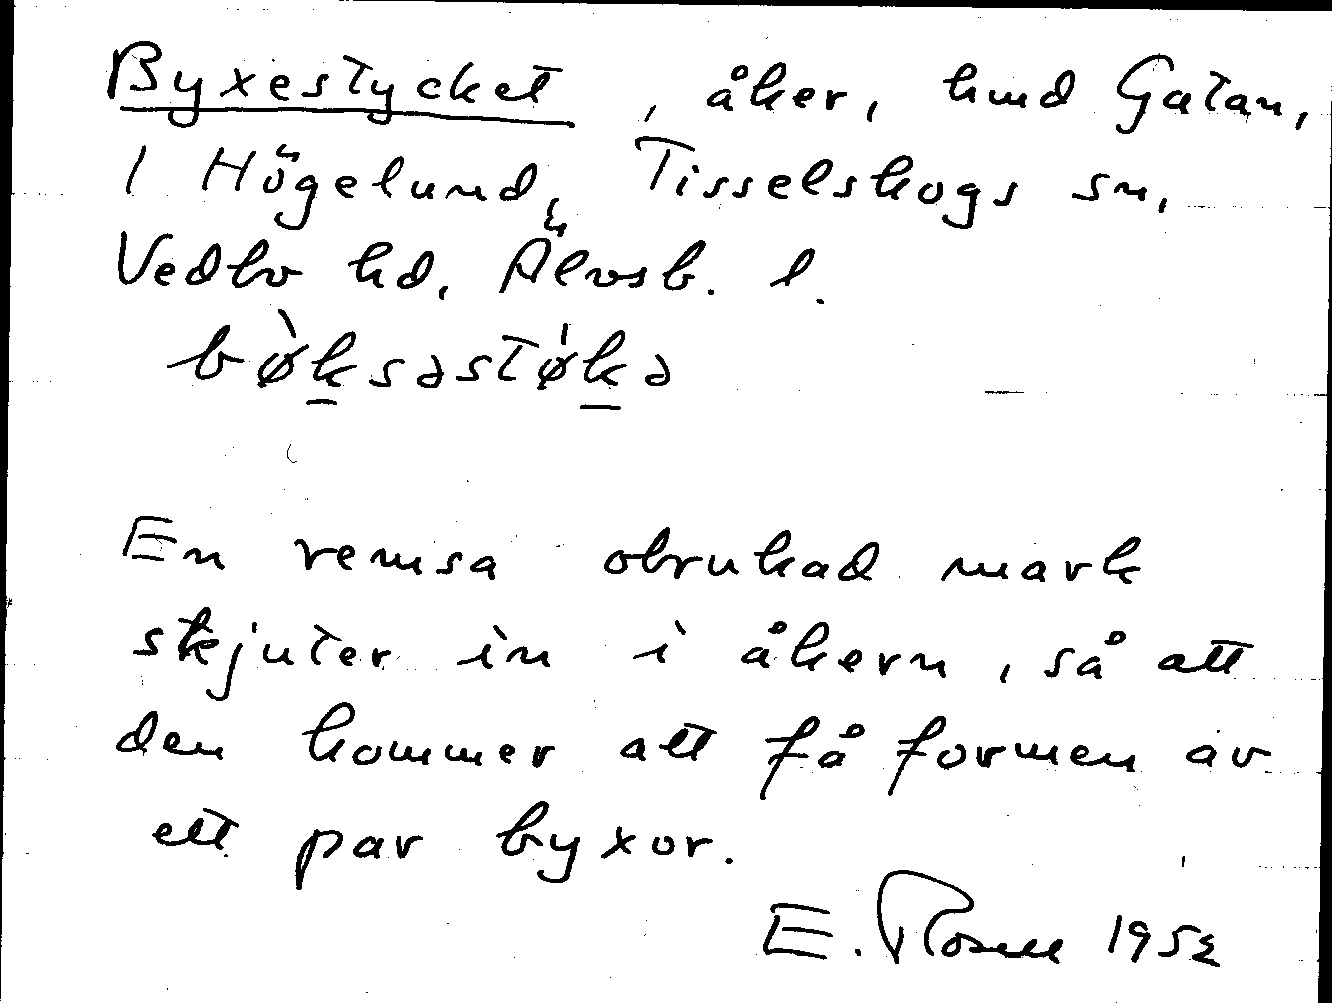 Byxestycket, åker, hmd Gatan,
1 Högelund, Tisselskogs sn,
Vedbo hd, Älvsb. l.
bø̀ksəstø̍kə
En remsa obrukad mark
skjuter in i åkern, så att
den kommer att få formen av
ett par byxor.
E. Rosell 1952